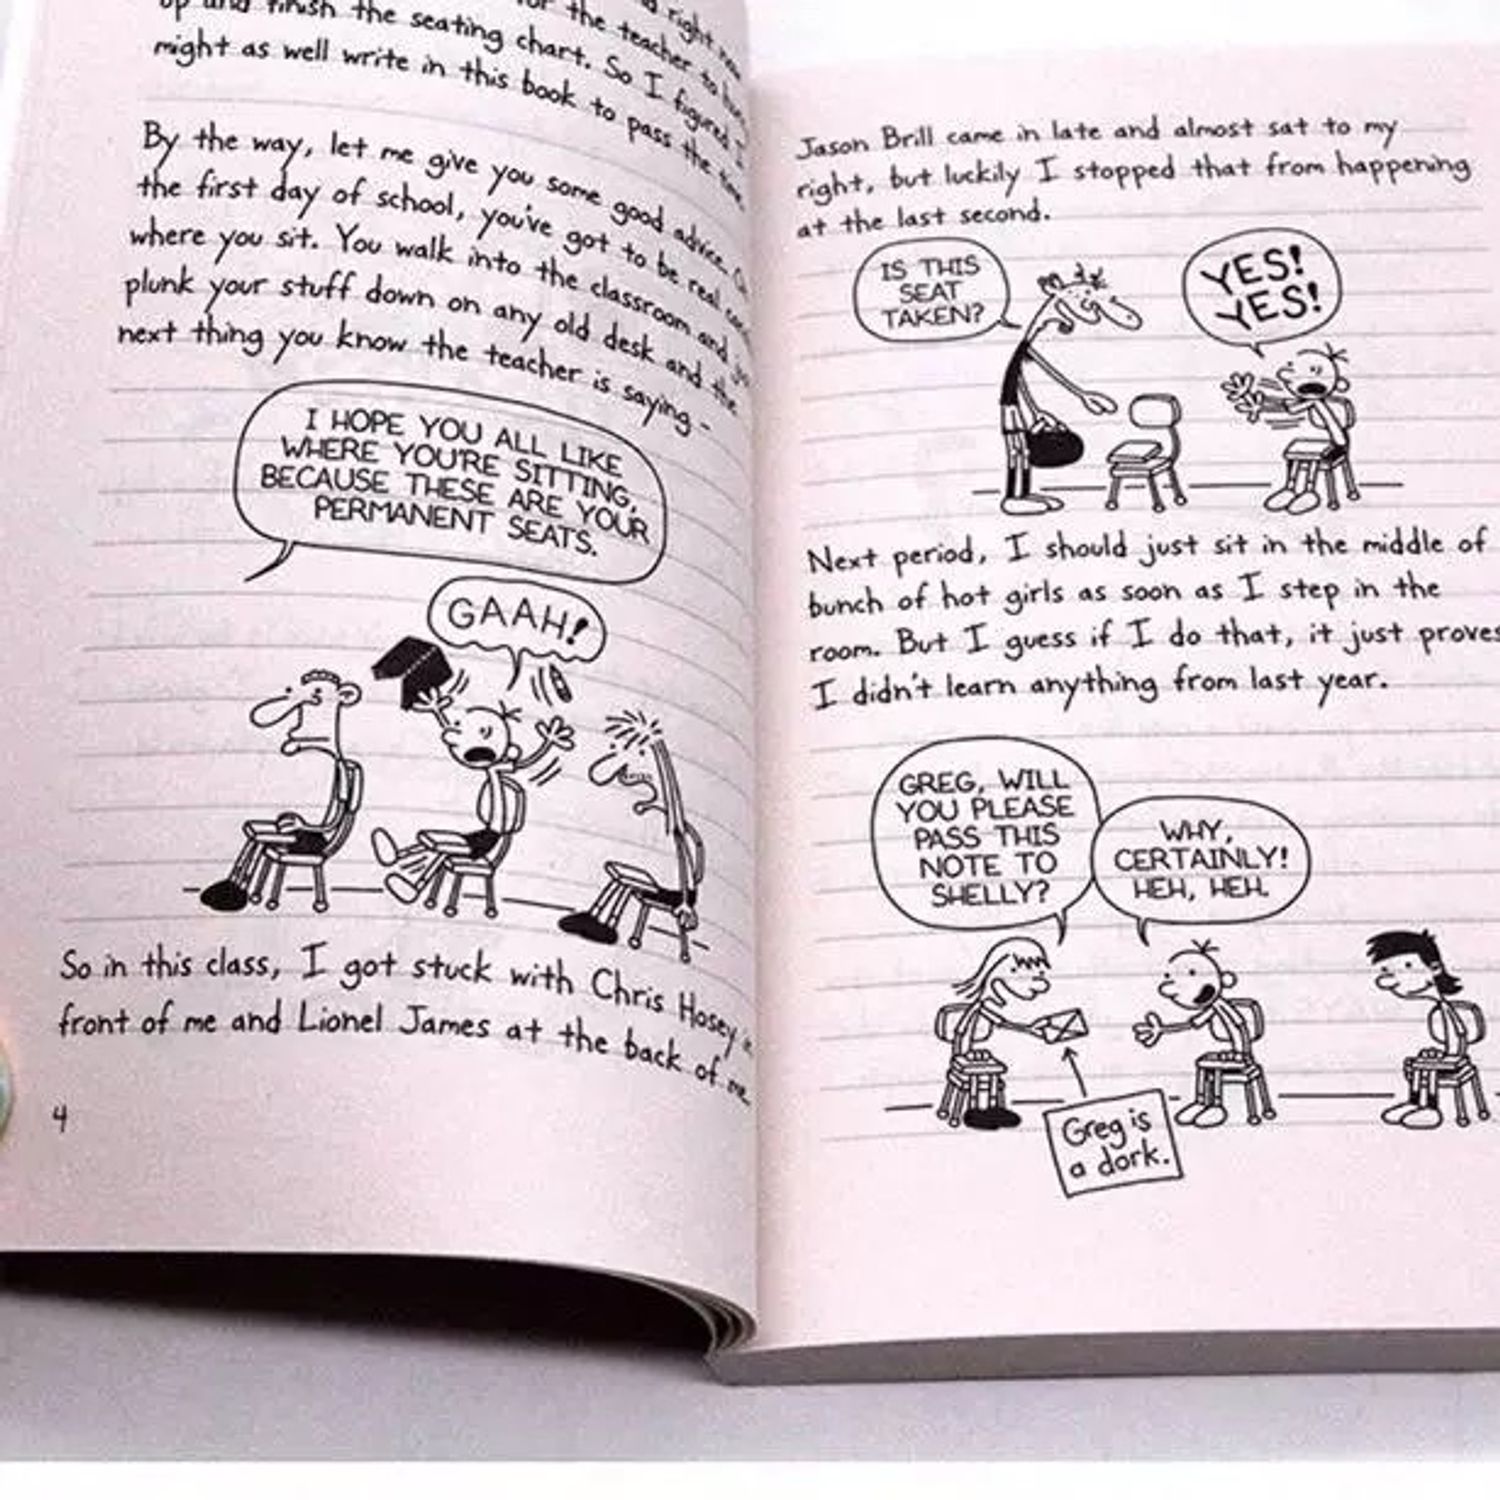 right now
for the teacher to
up and finish the seating chart. So I figured I
might as well write in this book to pass the time.
By the way, let me give you some good advice.
the first day of school, you've got to be real
where you sit. You walk into the classroom and
plunk your stuff down on any old desk and the
next thing you know the teacher is saying -
I HOPE YOU ALL LIKE
WHERE YOU'RE SITTING,
BECAUSE THESE ARE YOUR
PERMANENT SEATS.
GAAH!
So in this class, I got stuck with Chris Hosey
front of me and Lionel James at the back of me
4
Jason Brill came in late and almost sat to my
right, but luckily I stopped that from happening
at the last second.
IS THIS
SEAT
TAKEN?
YES!
YES!
Next period, I should just sit in the middle of
bunch of hot girls as soon as I step in the
room. But I guess if I do that, it just proves
I didn't learn anything from last year.
GREG, WILL
YOU PLEASE
PASS THIS
NOTE TO
SHELLY?
WHY,
CERTAINLY!
HEH, HEH.
Greg is
a dork.